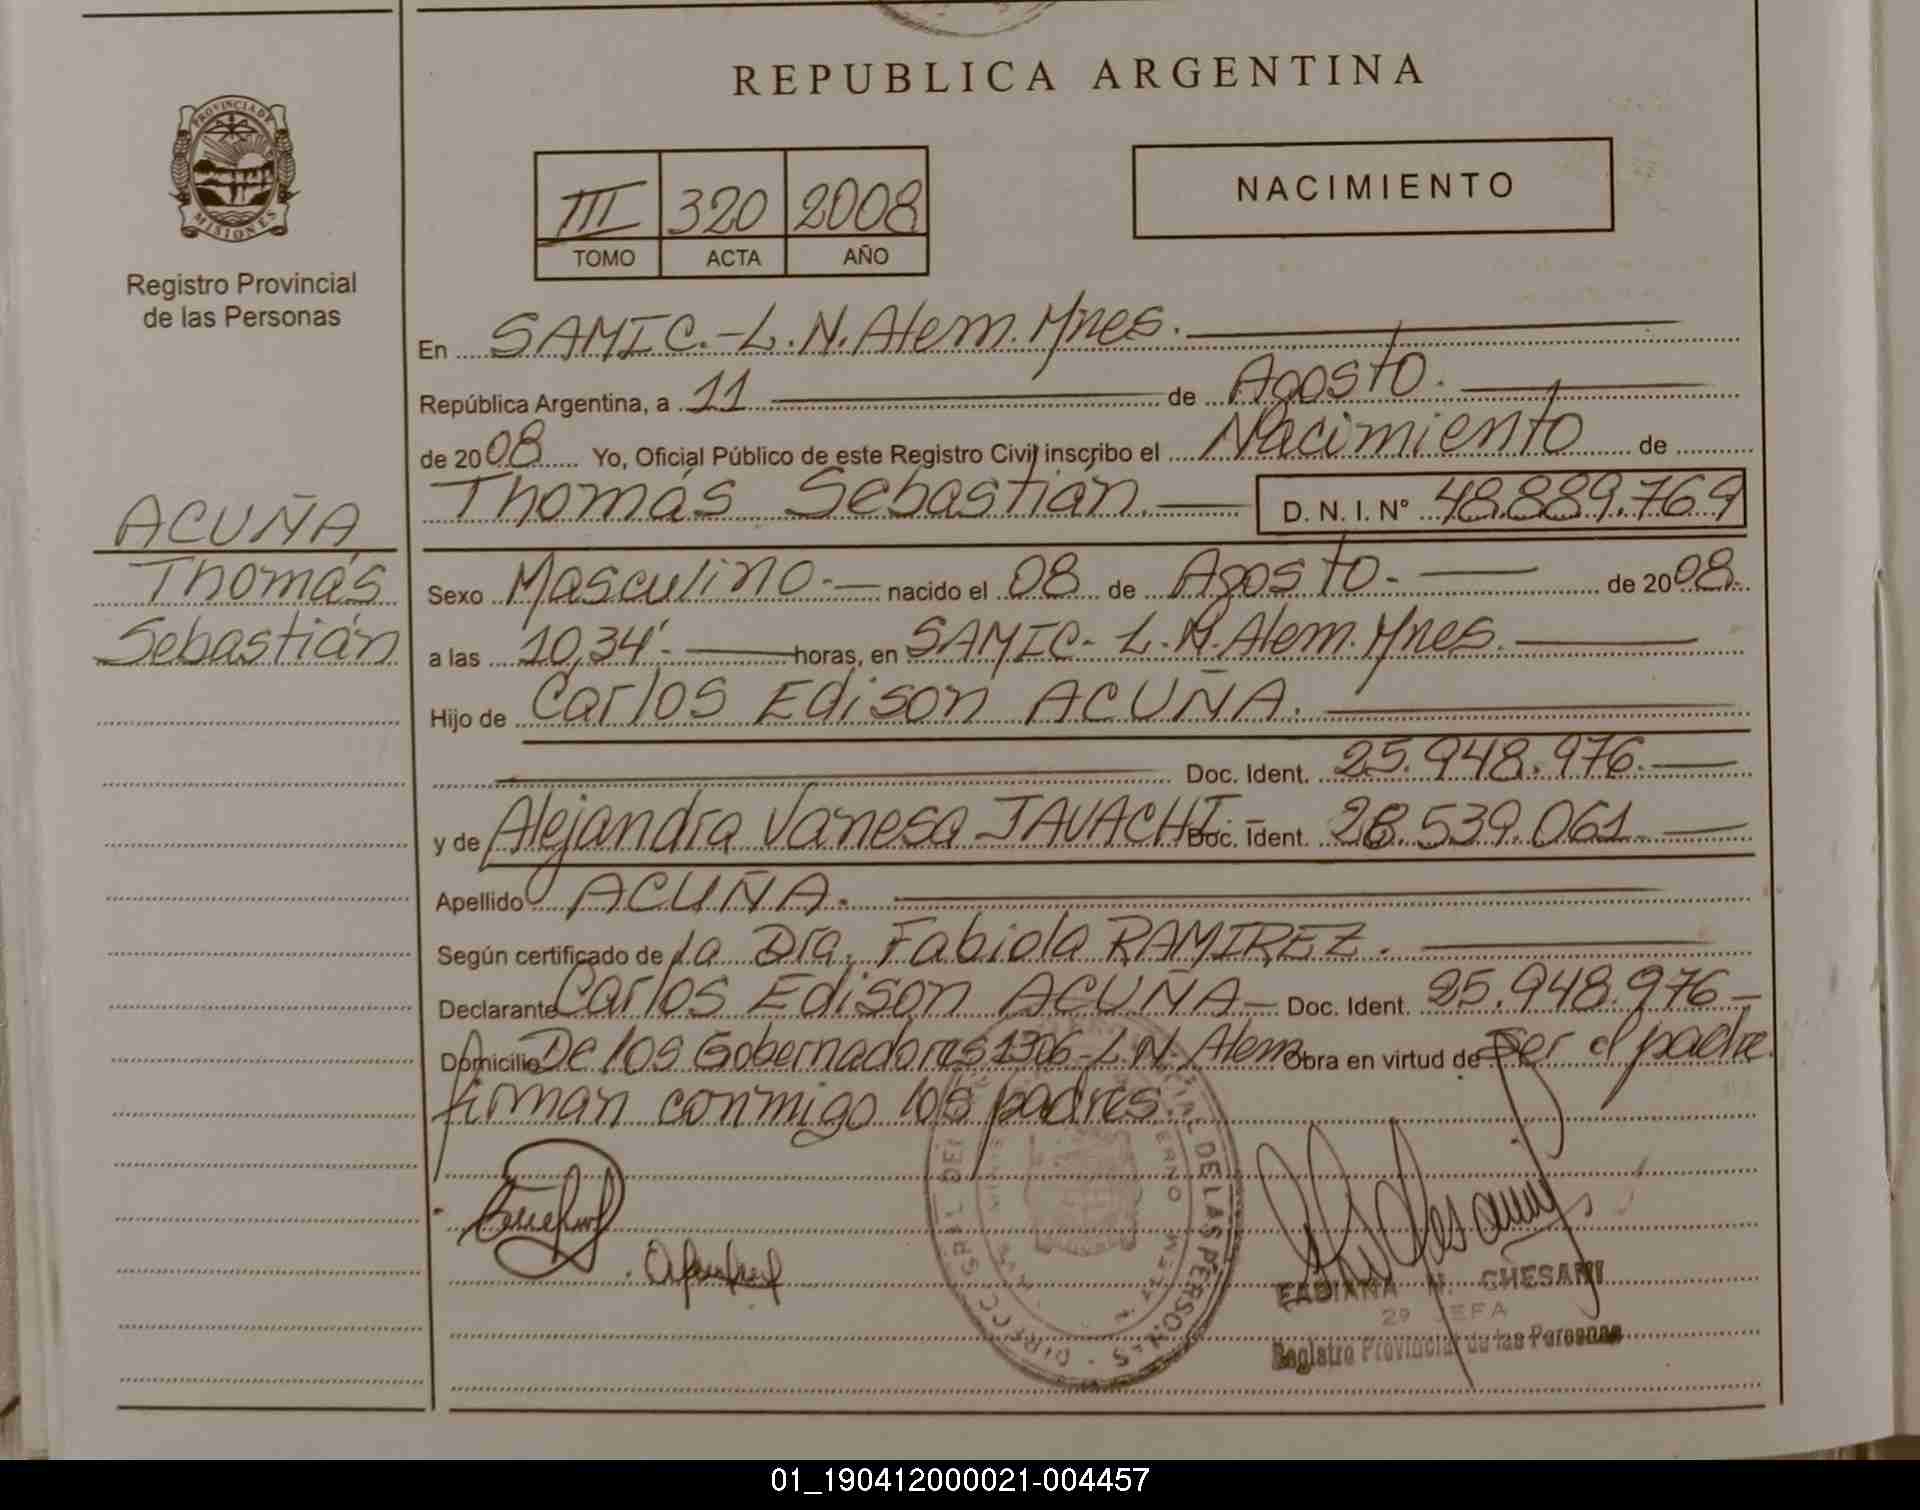 REPUBLICA ARGENTINA
PROVINCIA DE MISIONES
Registro Provincial
de las Personas
III 320 2008
TOMO ACTA AÑO
NACIMIENTO
En SAMIC.-L.N.Alem.Mnes.
República Argentina, a 11 de Agosto.
de 2008 Yo, Oficial Público de este Registro Civil inscribo el Nacimiento de
Thomás Sebastián. D. N. I. Nº 48.889.769
ACUÑA
Thomás
Sebastián
Sexo Masculino.- nacido el 08 de Agosto.- de 2008.
a las 10,34'.- horas, en SAMIC- L.N.Alem.Mnes.
Hijo de Carlos Edison ACUÑA.
Doc. Ident. 25.948.976.
y de Alejandra Vanesa JAVACHI.- Doc. Ident. 28.539.061
Apellido ACUÑA.
Según certificado de la Dra. Fabiola RAMIREZ.
Declarante Carlos Edison ACUÑA- Doc. Ident. 25.948.976-
Domicilio De los Gobernadores 1306-L.N. Alem Obra en virtud de ser el padre.
firman conmigo los padres.
FABIANA N. CHESANI
JEFA
Registro Provincial de las Personas
01_190412000021-004457